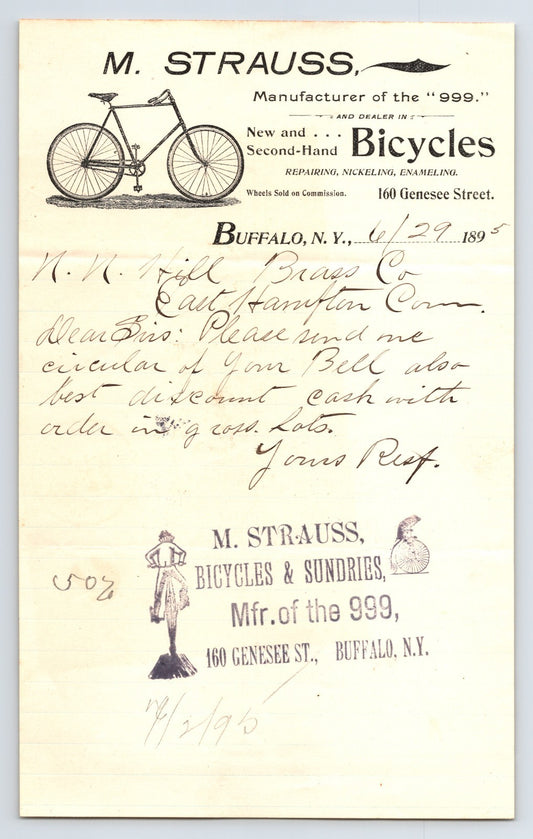 M. STRAUSS,
Manufacturer of the "999."
AND DEALER IN
New and . . .
Second-Hand
Bicycles
REPAIRING, NICKELING, ENAMELING.
Wheels Sold on Commission.
160 Genesee Street.
BUFFALO, N. Y., 6/29 1895
N. N. Hill Brass Co
East Hampton Conn.
Dear Sirs: Please send me
circular of your Bell also
best discount cash with
order in gross. Lots.
Yours Resp.
M. STRAUSS,
BICYCLES & SUNDRIES,
Mfr. of the 999,
160 GENESEE ST., BUFFALO, N.Y.
50%
/2/95